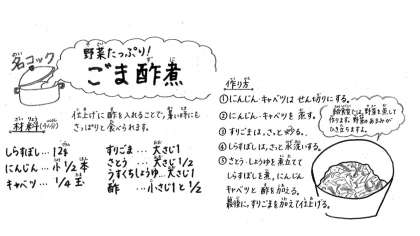 名コック
野菜たっぷり!
ごま酢煮
仕上げに酢を入れることで、暑い時にも
さっぱりと食べられます。
材料(4人分)
しらすぼし…12g
にんじん…小1/2本
キャベツ…1/4玉
すりごま…大さじ1
さとう…大さじ1/2
うすくちしょうゆ…大さじ1
酢…小さじ1と1/2
作り方
①にんじん・キャベツは せん切りにする。
②にんじん・キャベツを 蒸す。
③すりごまは、さっと炒る。
④しらすぼしは、さっと湯通しする。
⑤さとう・しょうゆを煮立て
しらすぼしを煮、にんじん
キャベツと 酢を加える。
最後に、すりごまを加えて仕上げる。
給食室では、野菜を蒸して
作ります。野菜のあまみが
ひき立ちますよ。